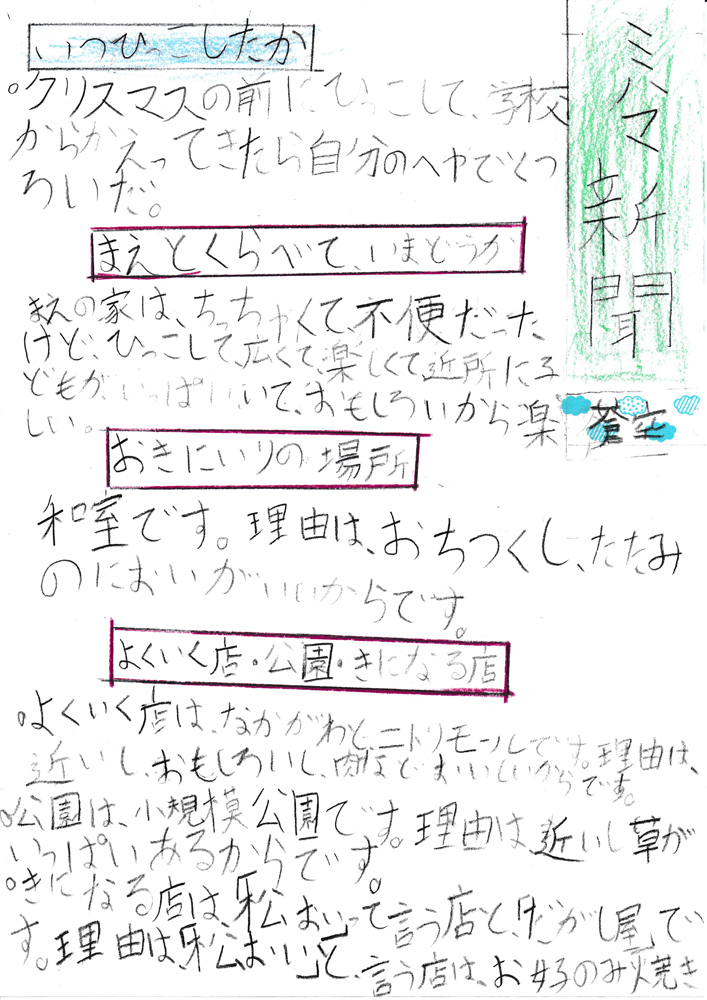 ミハマ新聞
蒼空
いつひっこしたか
○クリスマスの前にひっこして、学校
からかえってきたら自分のヘヤでくつ
ろいだ。
まえとくらべて、いまどうか
まえの家は、ちっちゃくて、不便だった
けど、ひっこして、広くて、楽しくて近所に子
どもがいっぱいいて、おもしろいから楽
しい。
おきにいりの場所
和室です。理由は、おちつくし、たたみ
のにおいがいいからです。
よくいく店・公園・きになる店
○よくいく店は、なかがわと、ニトリモールです。理由は、
近いし、おもしろいし、肉などおいしいからです。
○公園は、小規模公園です。理由は近いし草が
いっぱいあるからです。
○きになる店は、「私 まい」って言う店と、「だがし屋」で
す。理由は、「私 まい」と、言う店は、お好のみ焼き